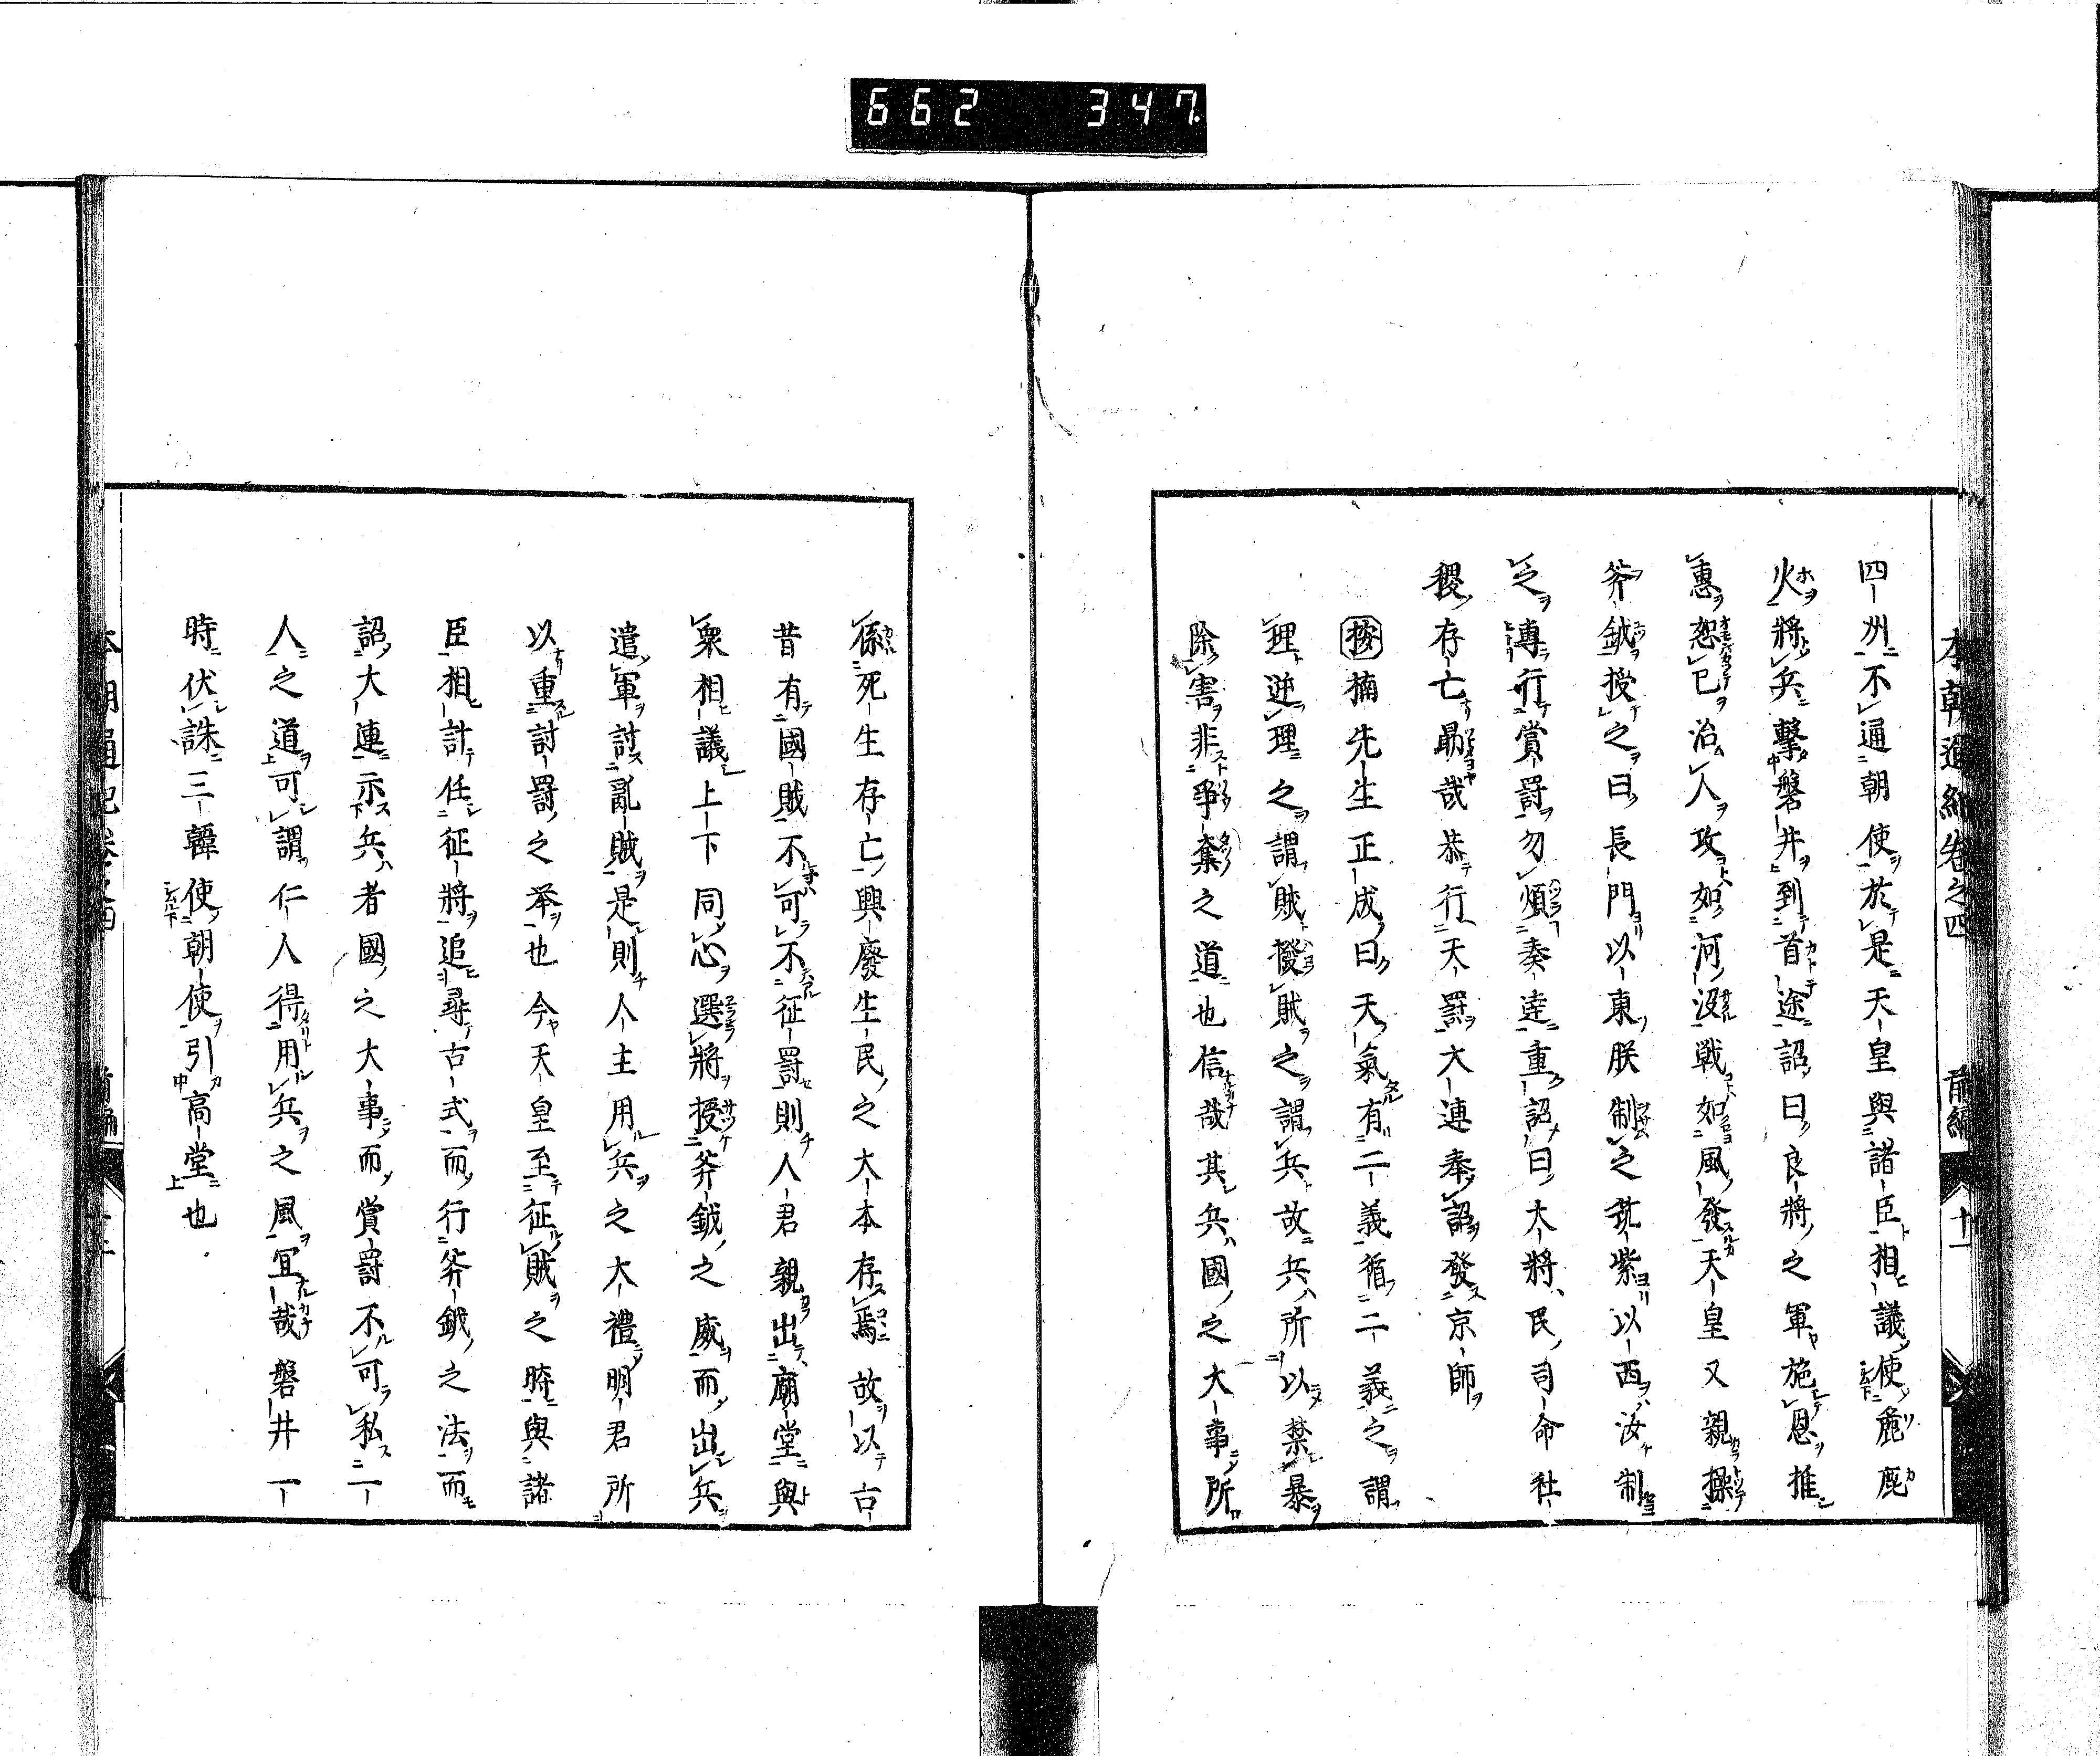 662 347
本朝通紀卷之四 前編 十一
四州不通朝使於是天皇與諸臣相議使麁鹿
火將兵擊磐井到首途詔曰良將之軍施恩推
惠恕己治人攻如河決戰如風發天皇又親操
斧鉞授之曰長門以東朕制之筑紫以西汝制
之專行賞罰勿煩奏達重詔曰大將民司命社
稷存亡勗哉恭行天罰大連奉詔發京師
按楠先生正成曰天氣有二義循二義之謂
理逆理之謂賊撥賊之謂兵故兵所以禁暴
除害非爭奪之道也信哉其兵國之大事所
係死生存亡興廢生民之大本存焉故以古
昔有國賊不可不征罰則人君親出廟堂與
衆相議上下同心選將授斧鉞之威而出兵
遣軍討亂賊是則人主用兵之大禮明君所
以重討罰之举也今天皇至征賊之時與諸
臣相計任征將追尋古式而行斧鉞之法而
詔大連示兵者國之大事而賞罰不可私一
人之道可謂仁人得用兵之風宜哉磐井一
時伏誅三韓使朝使引高堂也
本朝通紀卷之四 前編